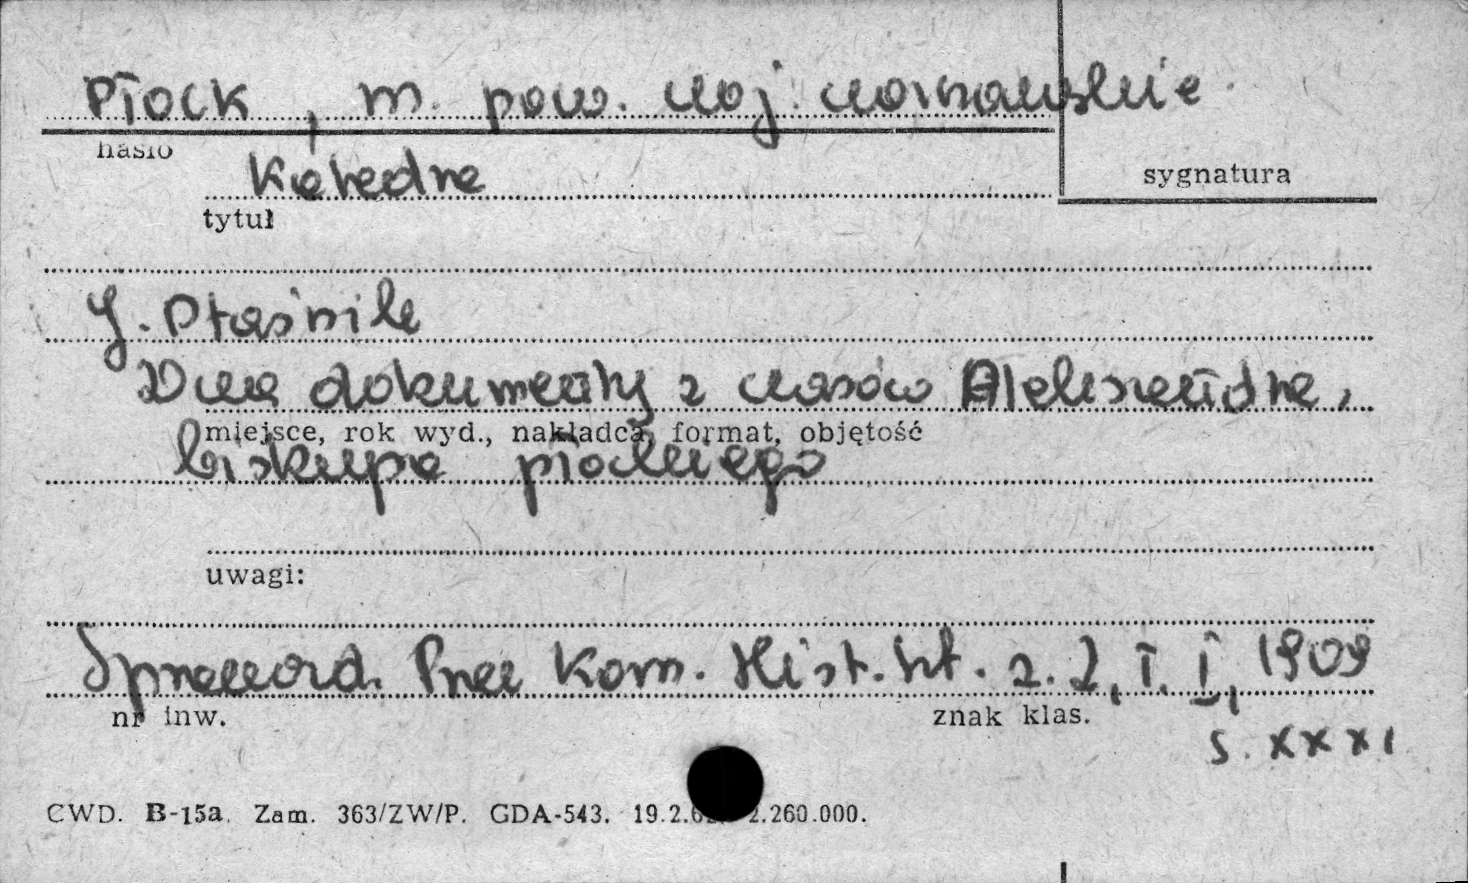 Płock, m. pow. woj. warszawskie
hasło
Katedra
sygnatura
tytuł
J. Ptaśnik
Dwa dokumenty z czasów Aleksandra,
miejsce, rok wyd., nakładca, format, objętość
biskupa płockiego
uwagi:
Sprawozd. Prac Kom. Hist. Szt. z. 2, T. I, 1909
nr inw.
znak klas.
s. XXXI
CWD. B-15a. Zam. 363/ZW/P. GDA-543. 19.2. 2.260.000.